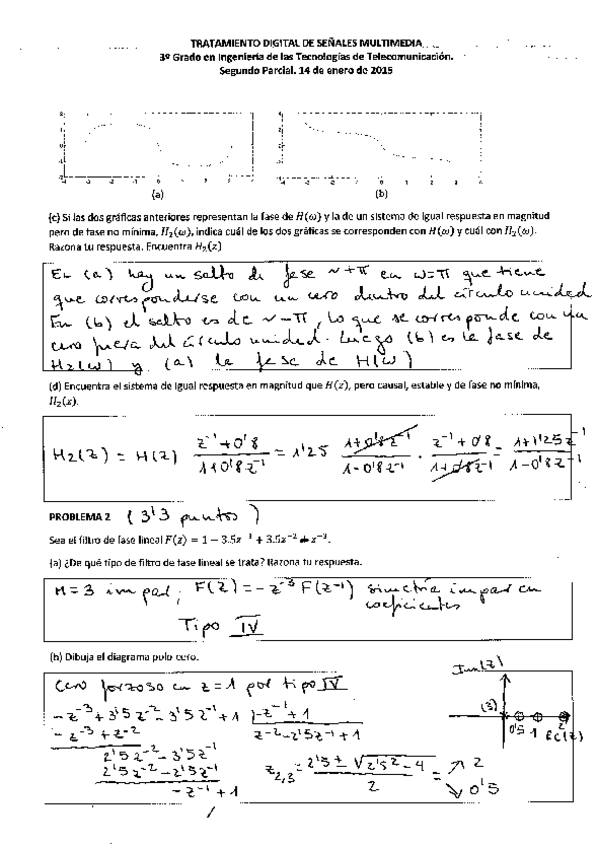 TRATAMIENTO DIGITAL DE SEÑALES MULTIMEDIA
3º Grado en Ingeniería de las Tecnologías de Telecomunicación.
Segundo Parcial. 14 de enero de 2015
(a) (b)
(c) Si las dos gráficas anteriores representan la fase de H(ω) y la de un sistema de igual respuesta en magnitud
pero de fase no mínima, H₂(ω), indica cuál de los dos gráficas se corresponden con H(ω) y cuál con H₂(ω).
Razona tu respuesta. Encuentra H₂(z)
En (a) hay un salto de fase ~+π en ω=π que tiene
que corresponderse con un cero dentro del círculo unidad
En (b) el salto es de ~-π, lo que se corresponde con un
cero fuera del círculo unidad. Luego (b) es la fase de
H2(ω) y (a) la fase de H(ω)
(d) Encuentra el sistema de igual respuesta en magnitud que H(z), pero causal, estable y de fase no mínima,
H₂(z).
H2(z) = H(z) (z⁻¹+0'8)/(1+0'8z⁻¹) = 1'25 (1+0'8z⁻¹)/(1-0'8z⁻¹) · (z⁻¹+0'8)/(1+0'8z⁻¹) = (1+1'25z⁻¹)/(1-0'8z⁻¹)
PROBLEMA 2 (3'3 puntos)
Sea el filtro de fase lineal F(z) = 1 − 3.5z⁻¹ + 3.5z⁻² − z⁻³.
(a) ¿De qué tipo de filtro de fase lineal se trata? Razona tu respuesta.
M=3 impar; F(z) = -z⁻³ F(z⁻¹) simetría impar en
coeficientes
Tipo IV
(b) Dibuja el diagrama polo cero.
Cero forzoso en z=1 por tipo IV
Im(z)
-z⁻³+3'5z⁻²-3'5z⁻¹+1 |-z⁻¹+1
-z⁻³+z⁻² z⁻²-2'5z⁻¹+1
(3) 0'5 1 2 Re(z)
2'5z⁻²-3'5z⁻¹
2'5z⁻²-2'5z⁻¹
-z⁻¹+1
z₂,₃ = (2'5 ± √(2'5²-4))/2 = ↗ 2 ↘ 0'5